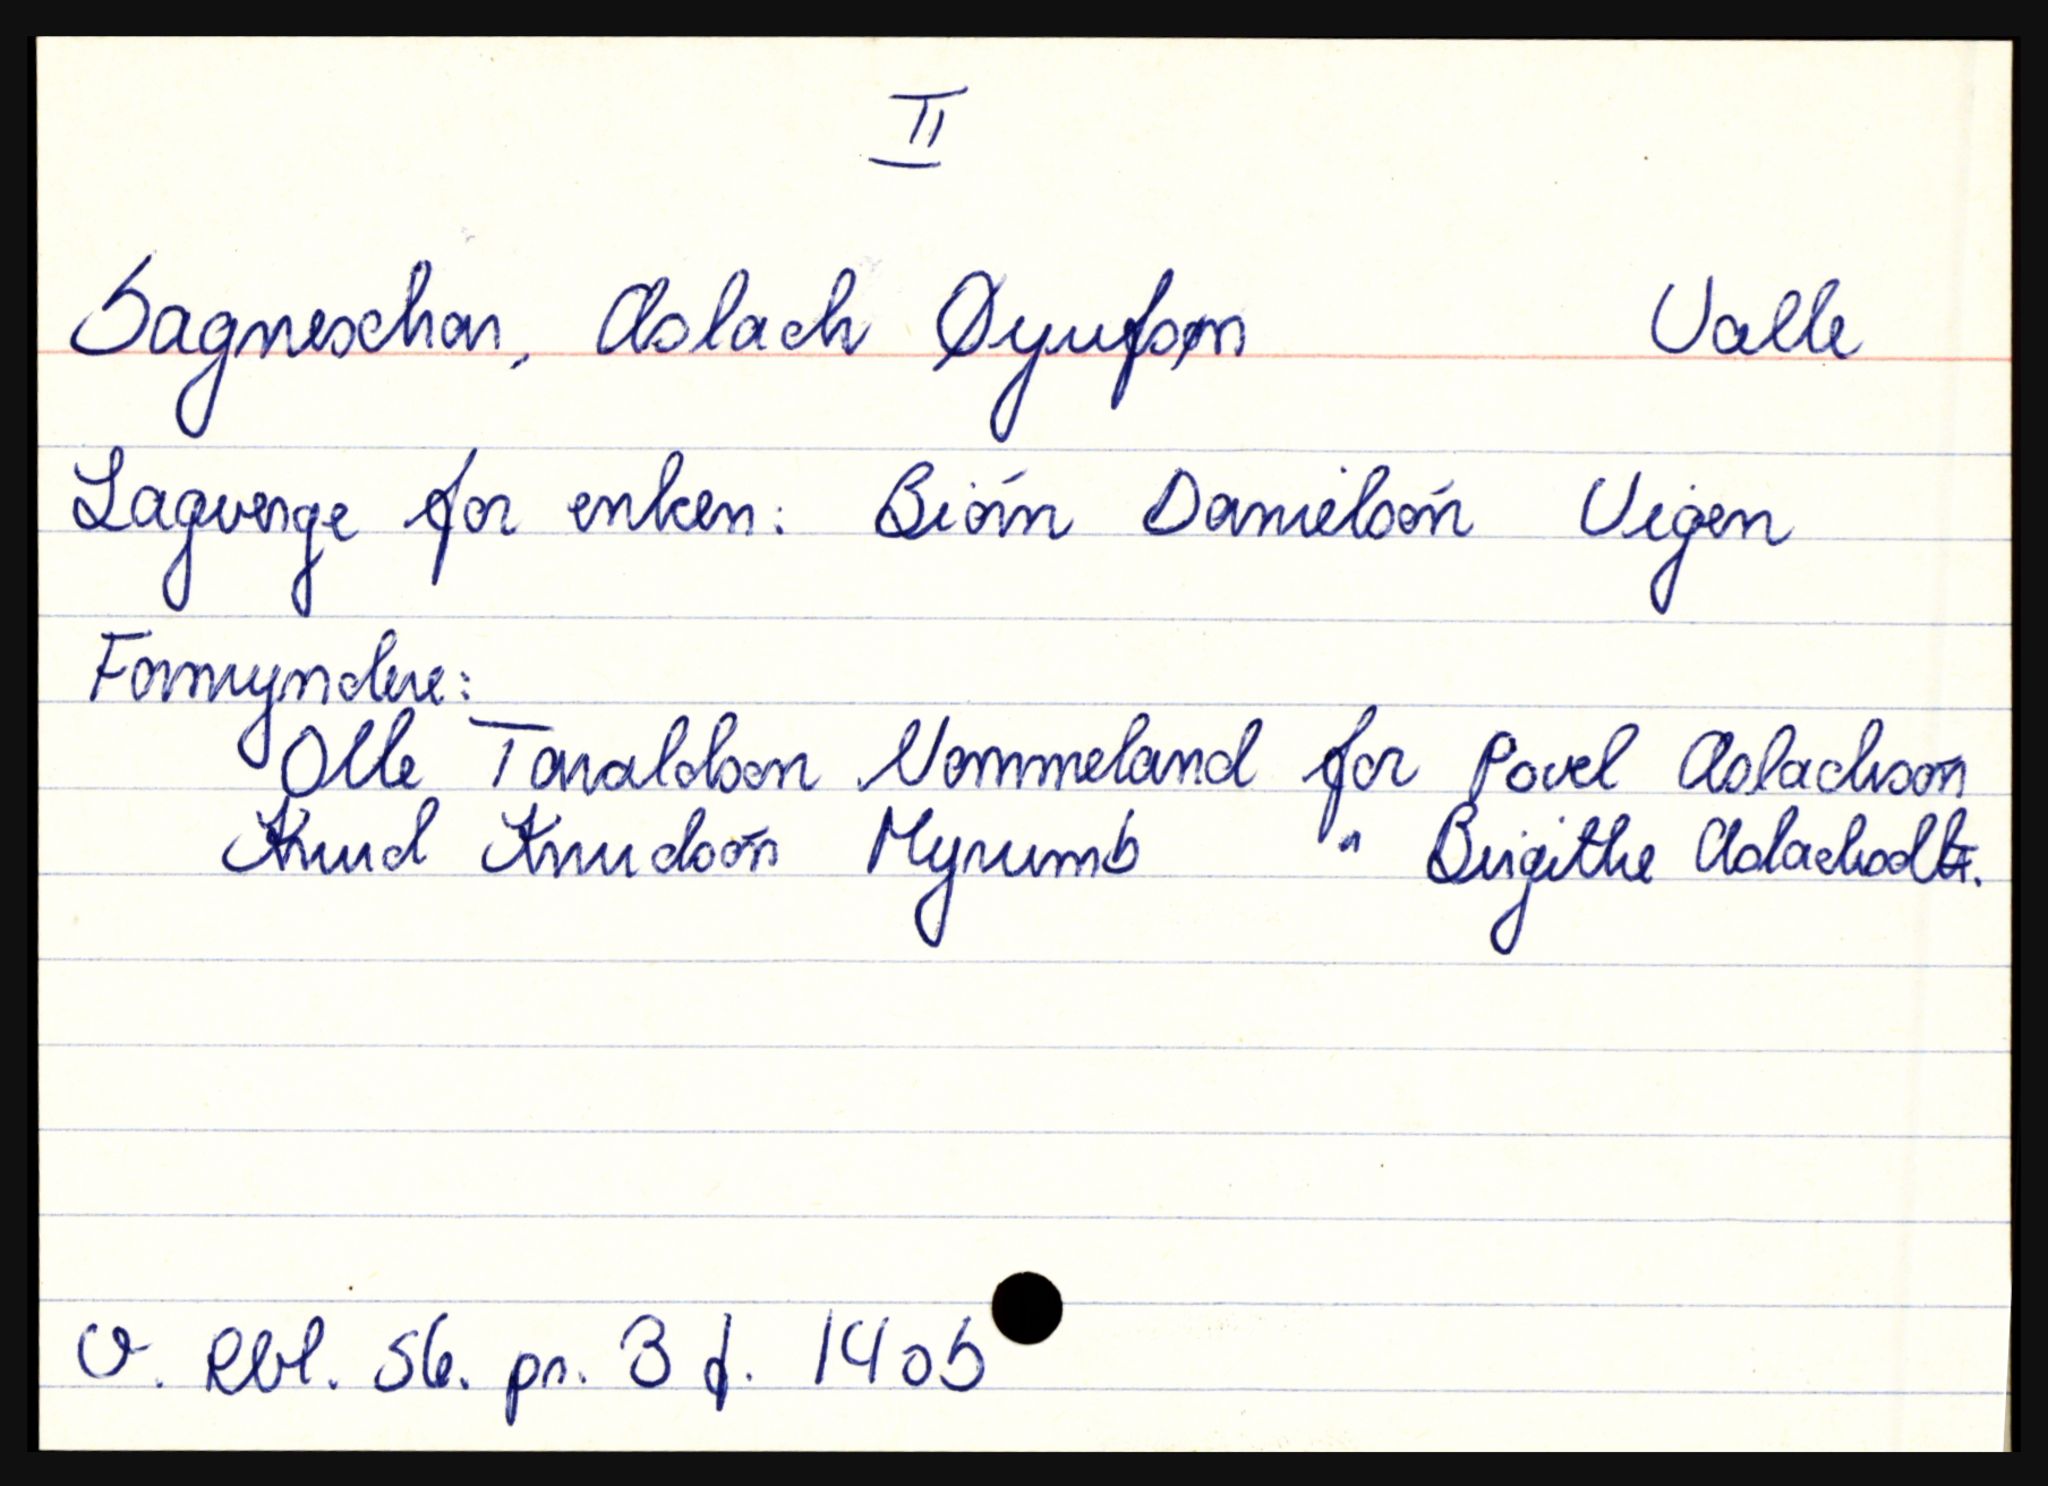 II
Sagneschar, Aslach Øyufsøn Valle
Lagverge for enken: Biórn Danielsón Vigen
Formyndere:
Olle Taraldson Nommeland for Povel Aslachsón
Knud Knudsón Myrumb " Birgithe Aslachsdtr.
V. Rbl. Sk. pr. 3 f. 140b